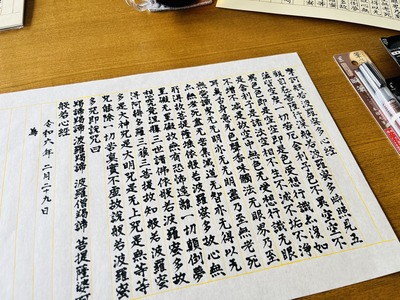 摩訶般若波羅蜜多心経
観自在菩薩行深般若波羅蜜多時照見五
蘊皆空度一切苦厄舎利子色不異空空不
異色色即是空空即是色受想行識亦復如
是舎利子是諸法空相不生不滅不垢不浄
不増不減是故空中無色無受想行識無眼
耳鼻舌身意無色声香味触法無眼界乃至
無意識界無無明亦無無明尽乃至無老死
亦無老死尽無苦集滅道無智亦無得以无
所得故菩提薩埵依般若波羅蜜多故心無
罣礙無罣礙故無有恐怖遠離一切顛倒夢
想究竟涅槃三世諸佛依般若波羅蜜多故
得阿耨多羅三藐三菩提故知般若波羅蜜
多是大神呪是大明呪是无上呪是無等等
呪能除一切苦真實不虚故説般若波羅蜜
多呪即説呪曰
羯諦羯諦 波羅羯諦 波羅僧羯諦 菩提薩婆訶
般若心経
令和六年二月二十九日
為